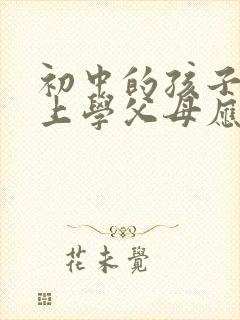 初中的孩子
上學父母應
花未覺